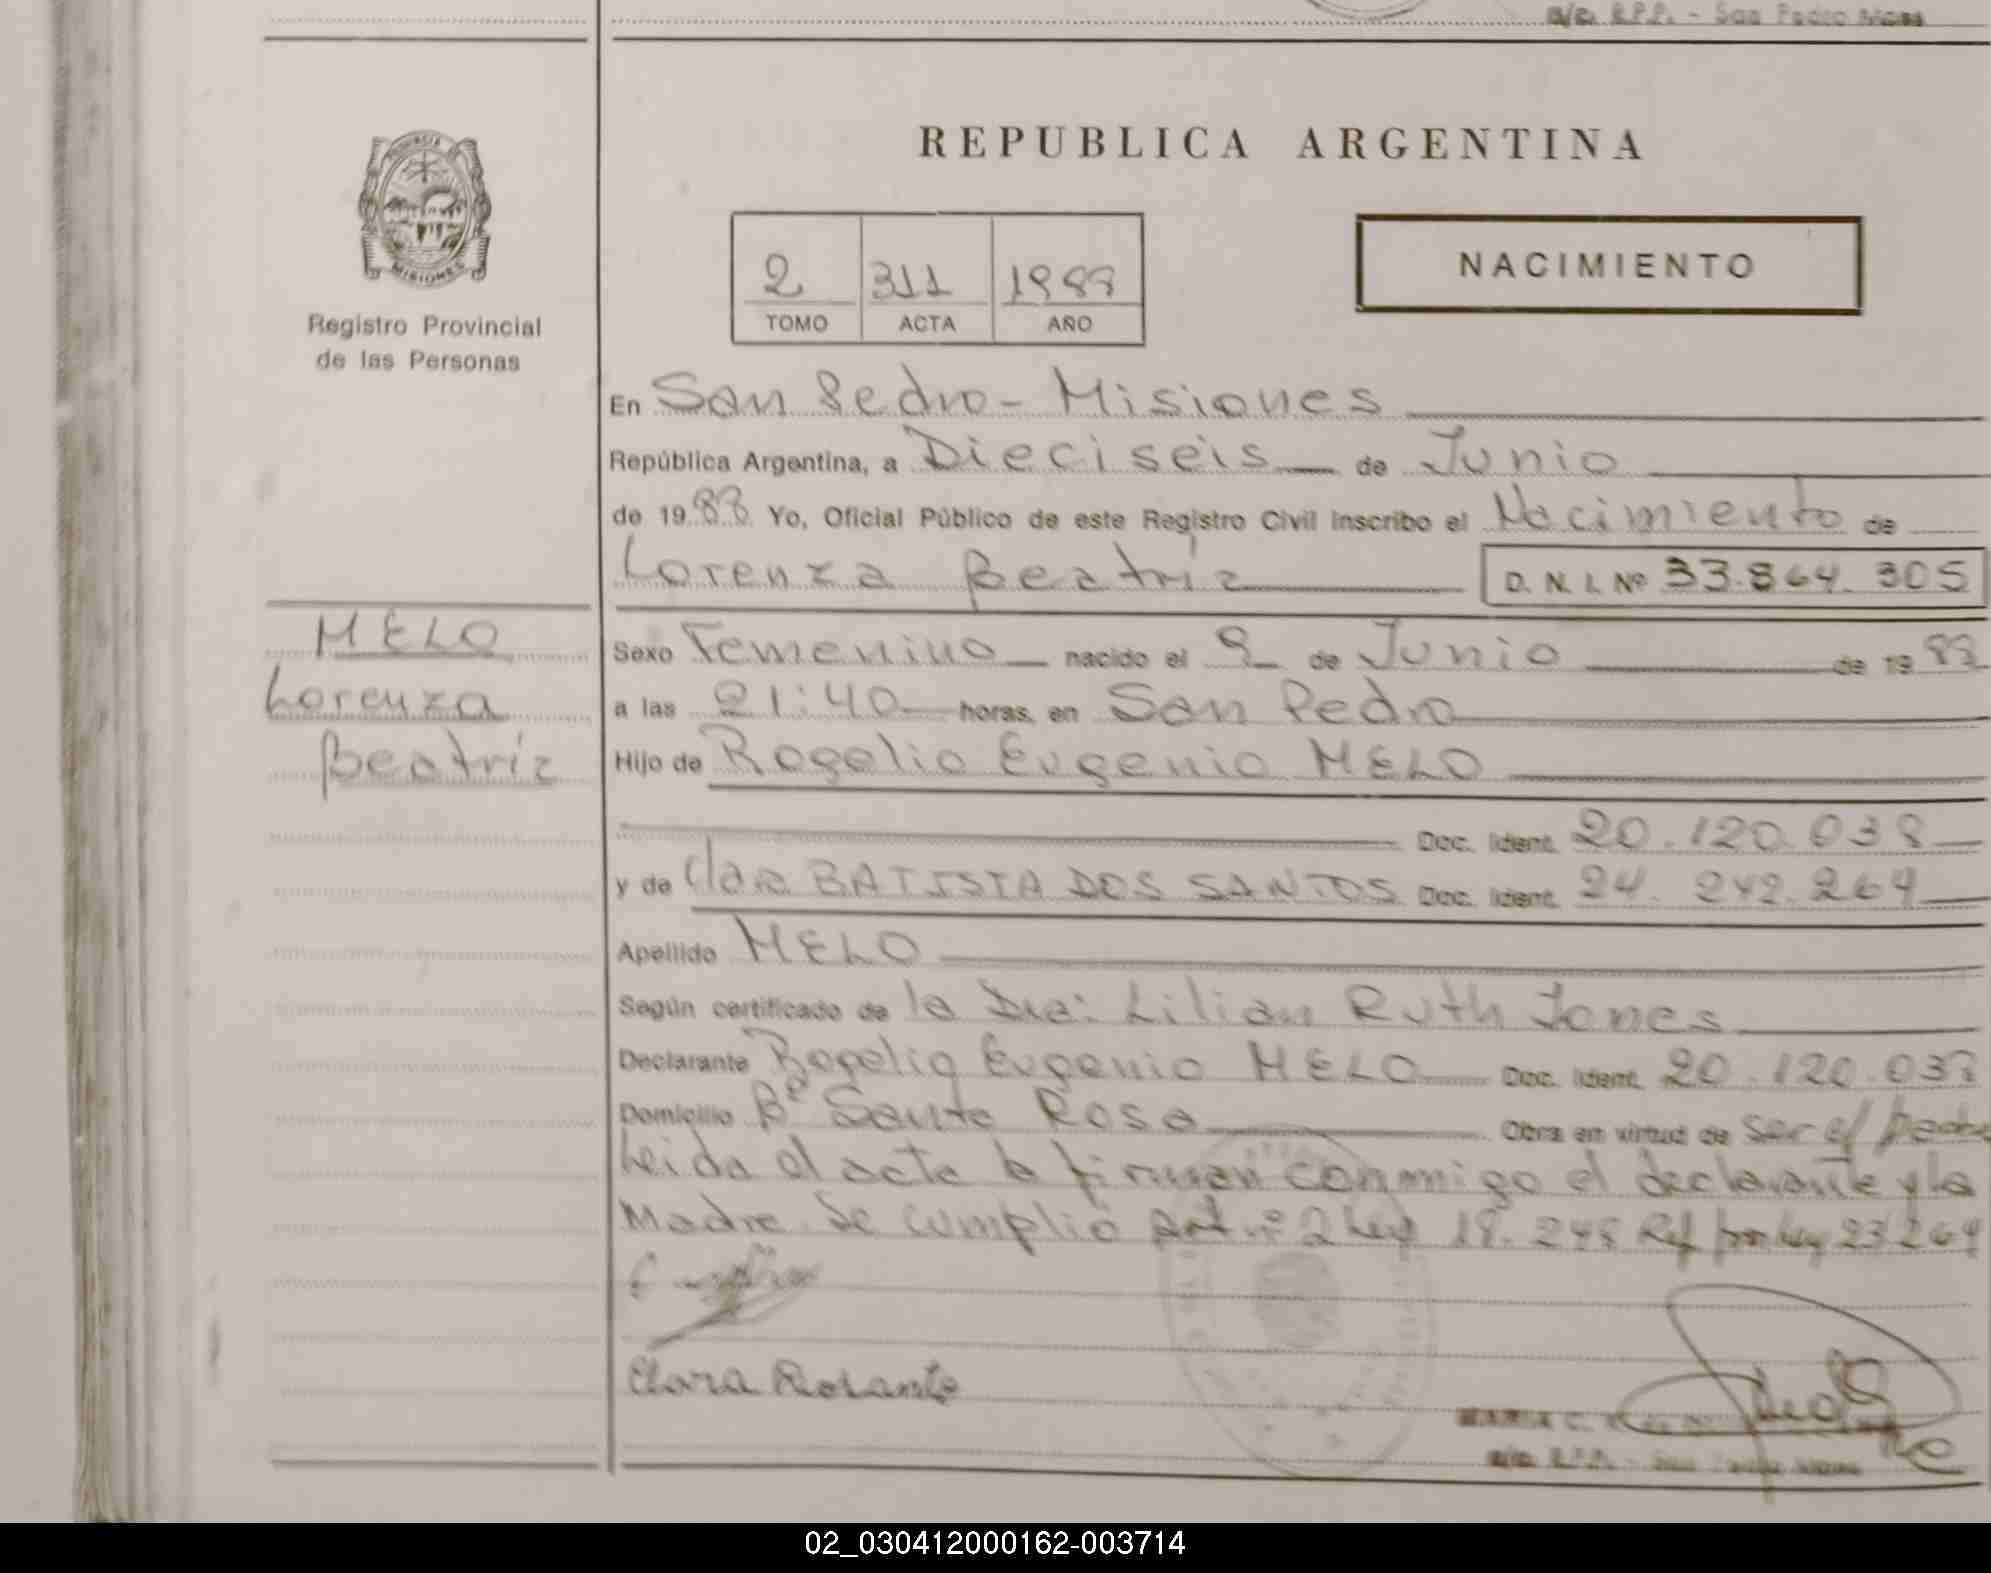 a/c. R.P.P. - San Pedro Mnes
REPUBLICA ARGENTINA
PROVINCIA
MISIONES
Registro Provincial
de las Personas
2 311 1988
TOMO ACTA AÑO
NACIMIENTO
En San Pedro - Misiones
República Argentina, a Dieciseis de Junio
de 1988 Yo, Oficial Público de este Registro Civil inscribo el Nacimiento de
Lorenza Beatríz D. N. I. Nº 33.864.305
MELO
Lorenza
Beatríz
Sexo Femenino nacido el 9 de Junio de 1988
a las 21:40 horas, en San Pedro
Hijo de Rogelio Eugenio MELO
Doc. Ident. 20.120.038
y de BATISTA DOS SANTOS Doc. Ident. 24.242.264
Apellido MELO
Según certificado de la Dra: Lilian Ruth Jones
Declarante Rogelio Eugenio MELO Doc. Ident. 20.120.038
Domicilio Bº Santa Rosa Obra en virtud de ser el padre
Leida el acta la firman conmigo el declarante y la
Madre. Se cumplió art nº 2 Ley 18.248 Ref por ley 23264
Clara
MARIA C.
a/c. R.P.P. - San Pedro Mnes
02_030412000162-003714